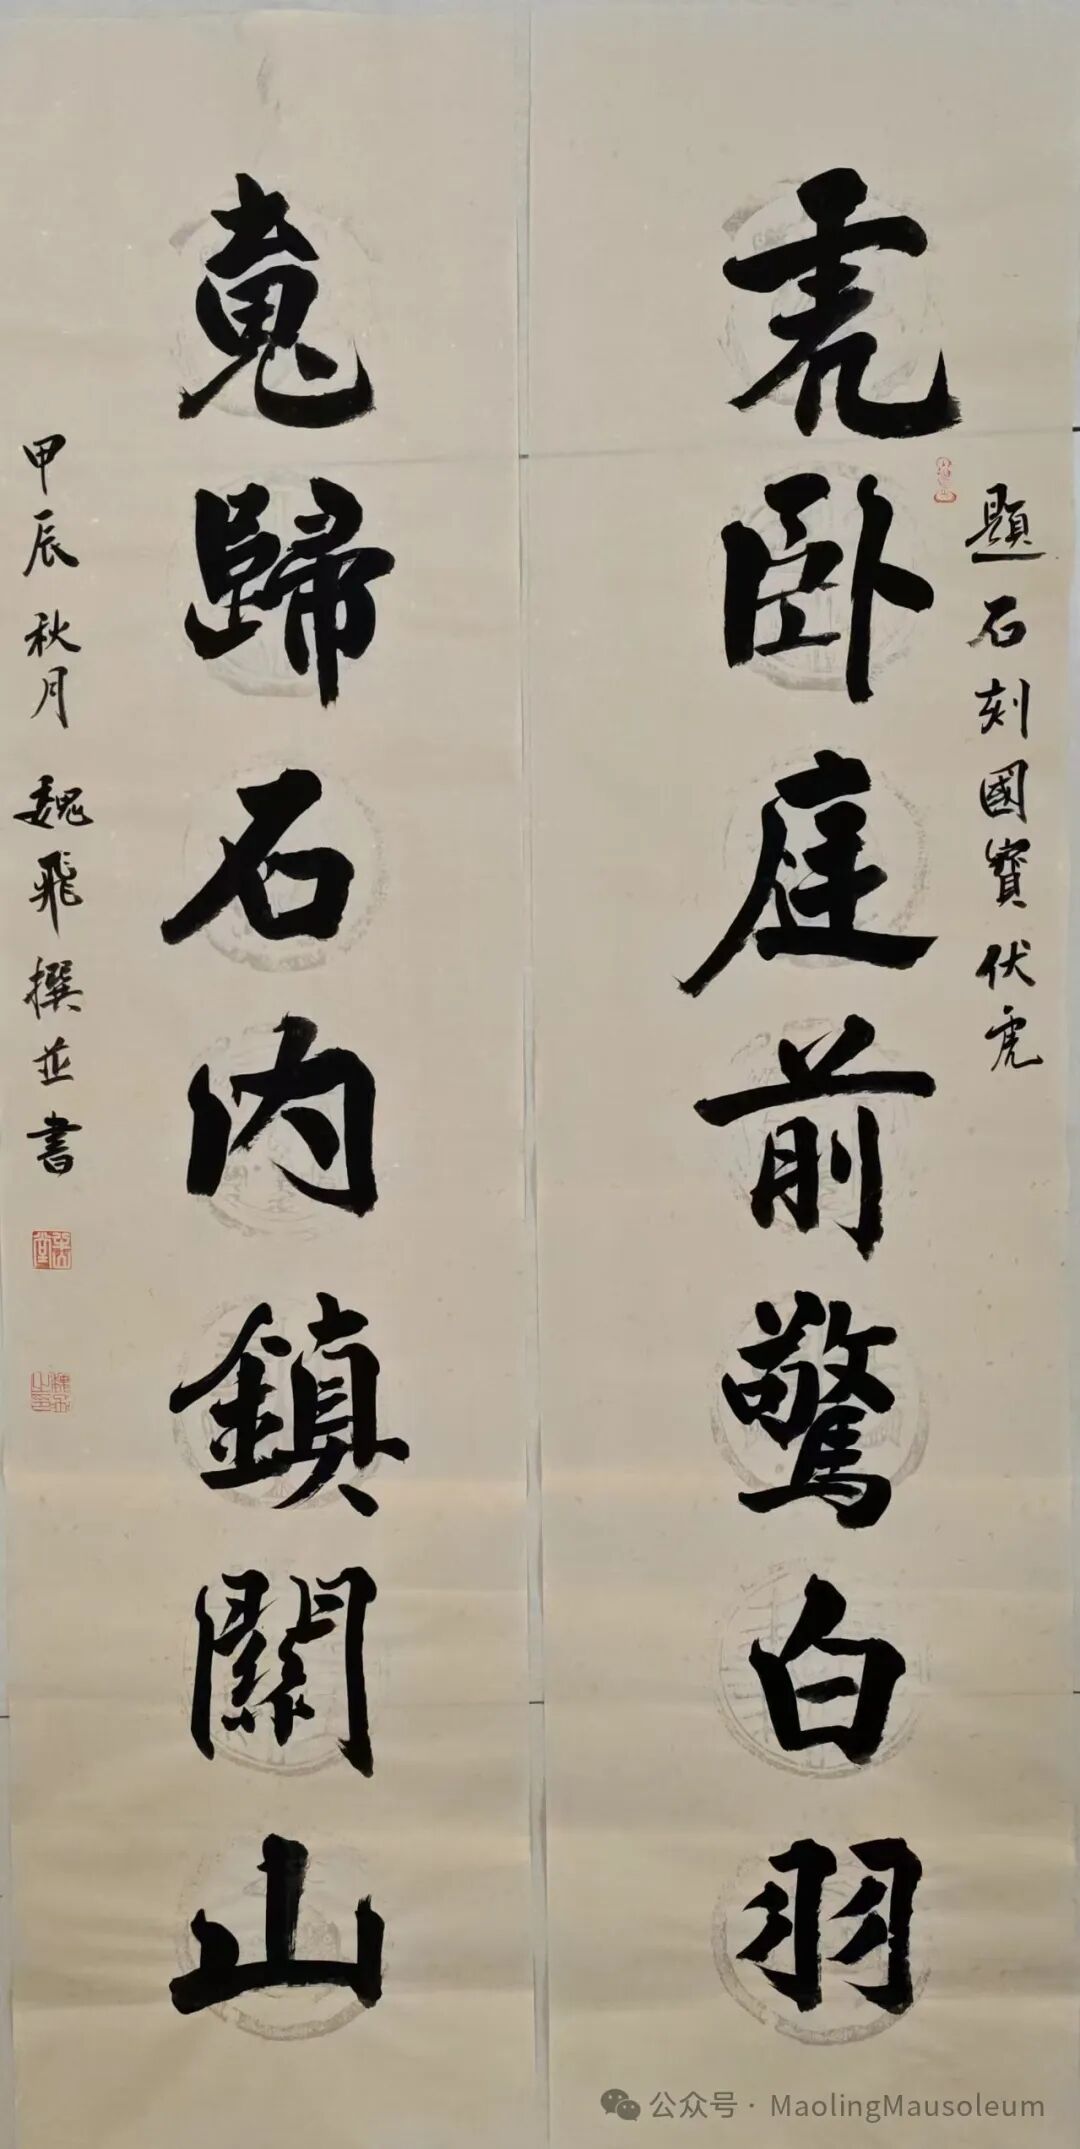 題石刻國寶伏虎
虎卧庭前驚白羽
魂歸石内鎮關山
甲辰秋月魏飛撰並書
公众号 · MaolingMausoleum